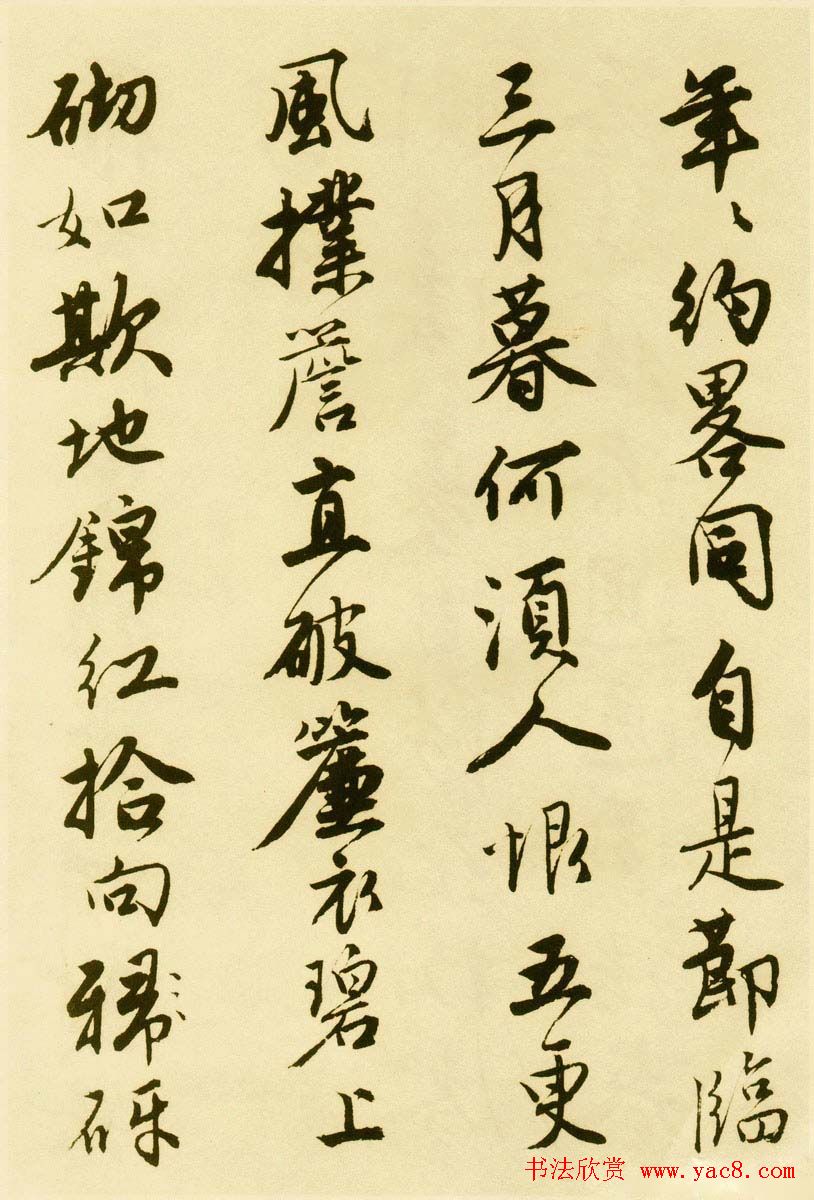 年〻約畧同自是莭臨
三月暮何須人恨五更
風撲簷直破簾衣碧上
砌如欺地錦紅拾向砑
书法欣赏 www.yac8.com